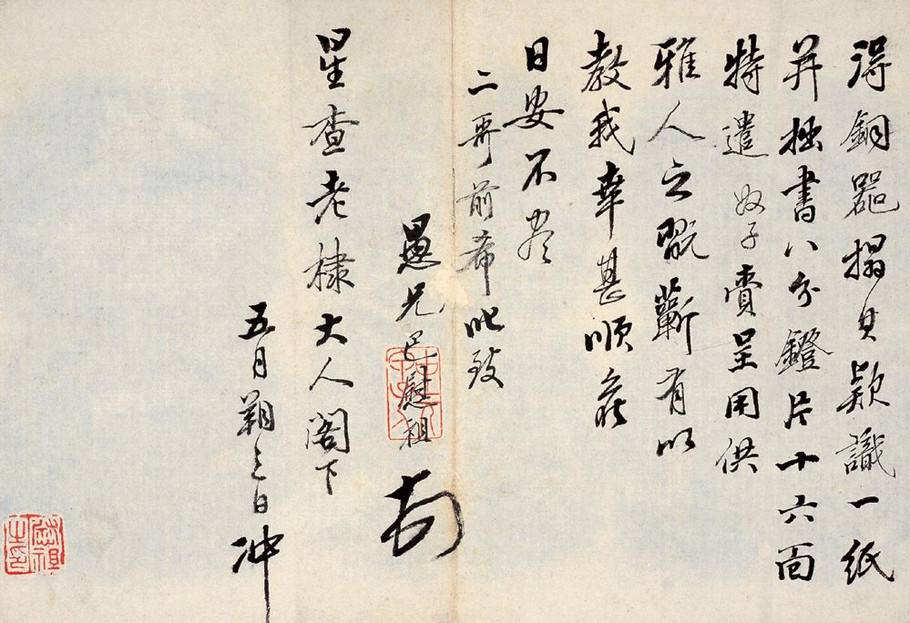 得銅器搨其款識一紙
并拙書八分鐙片十六面
特遣奴子賫呈用供
雅人之翫蘄有以
教我幸甚順庥
日安不盡
二哥前希叱致
愚兄巴慰祖
星查老棣大人閣下
五月朔之日冲
慰祖之印